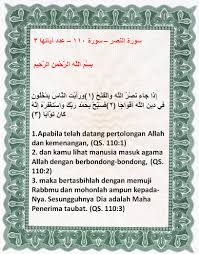 سورة النصر – سورة ١١٠ – عدد آياتها ٣
بسم الله الرحمن الرحيم
إِذَا جَاء نَصْرُ اللَّهِ وَالْفَتْحُ (١) وَرَأَيْتَ النَّاسَ يَدْخُلُونَ
فِي دِينِ اللَّهِ أَفْوَاجًا (٢) فَسَبِّحْ بِحَمْدِ رَبِّكَ وَاسْتَغْفِرْهُ إِنَّهُ
كَانَ تَوَّابًا (٣)
1.Apabila telah datang pertolongan Allah
dan kemenangan, (QS. 110:1)
2. dan kamu lihat manusia masuk agama
Allah dengan berbondong-bondong, (QS.
110:2)
3. maka bertasbihlah dengan memuji
Rabbmu dan mohonlah ampun kepada-
Nya. Sesungguhnya Dia adalah Maha
Penerima taubat. (QS. 110:3)